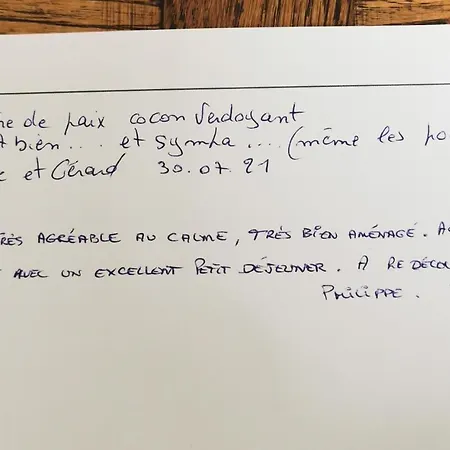 de paix cocon verdoyant
bien... et sympa.... (même les po
et Gérard 30.07.21
TRÈS AGRÉABLE AU CALME, TRÈS BIEN AMÉNAGÉ. A
AVEC UN EXCELLENT PETIT DÉJEUNER. A REDÉCOU
PHILIPPE.